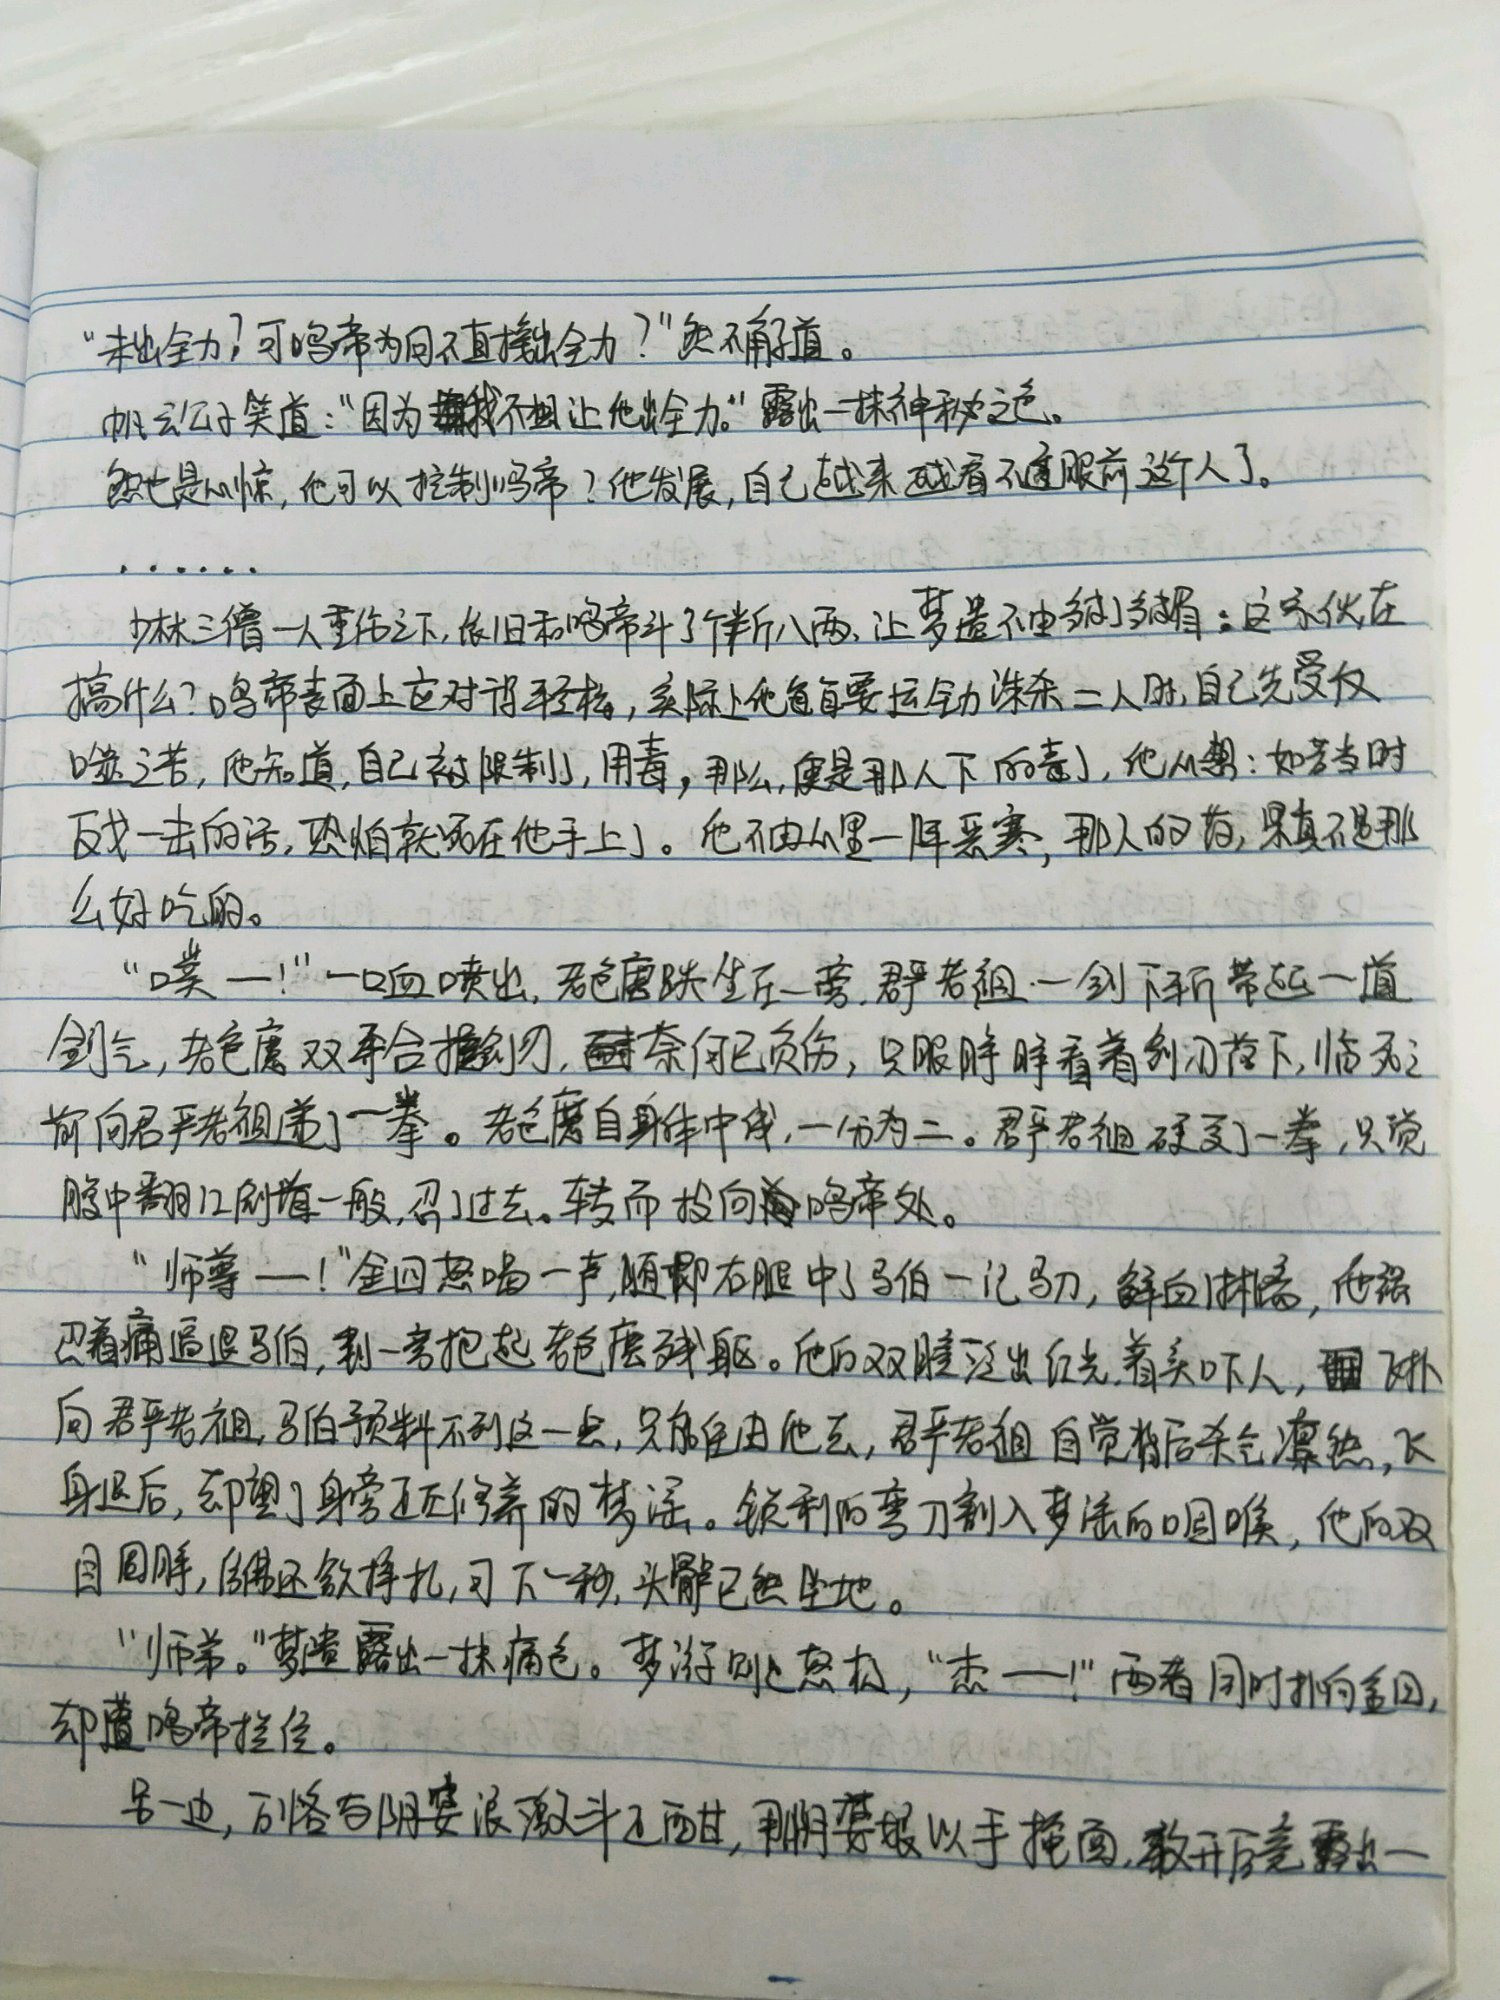 “未出全力？可鸣帝为何不直接出全力？”然不解道。
帆云公子笑道：“因为我不想让他出全力。”露出一抹神秘之色。
然也是心惊，他可以控制鸣帝？他发展，自己越来越看不透眼前这个人了。
......
少林三僧一人重伤之下，依旧和鸣帝斗了个半斤八两，让梦遗不由皱了皱眉：这家伙在
搞什么？鸣帝表面上应对得轻松，实际上他每每要运全力诛杀二人时，自己先受反
噬之苦，他知道，自己被限制了，用毒，那么，便是那人下的毒了，他心想：如若当时
反戈一击的话，恐怕就死在他手上了。他不由心里一阵恶寒，那人的药，果真不是那
么好吃的。
“噗—！”一口血喷出，老色魔跌坐在一旁，君严老祖一剑下斩带起一道
剑气，老色魔双手合握剑刃，奈何已负伤，只眼睁睁看着剑刃落下，临死之
前向君严老祖递了一拳。老色魔自身体中线，一分为二。君严老祖硬受了一拳，只觉
腹中翻江倒海一般，忍了过去。转而投向鸣帝处。
“师尊—！”金四怒喝一声，随即右腿中了马伯一记马刀，鲜血淋漓，他强
忍着痛逼退马伯，到一旁抱起老色魔残躯。他的双瞳泛出红光，着实吓人，飞扑
向君严老祖，马伯预料不到这一点，只能任由他去，君严老祖自觉背后杀气凛然，飞
身退后，却望了身旁还在修养的梦淫。锐利的弯刀割入梦淫的咽喉，他的双
目圆睁，仿佛还欲挣扎，可下一秒，头骨已然坠地。
“师弟。”梦遗露出一抹痛色。梦游则是怒极，“杰—！”两者同时扑向金四，
却遭鸣帝拦住。
另一边，万恪与阴婆娘激斗正酣，那阴婆娘以手掩面，散开后竟露出一